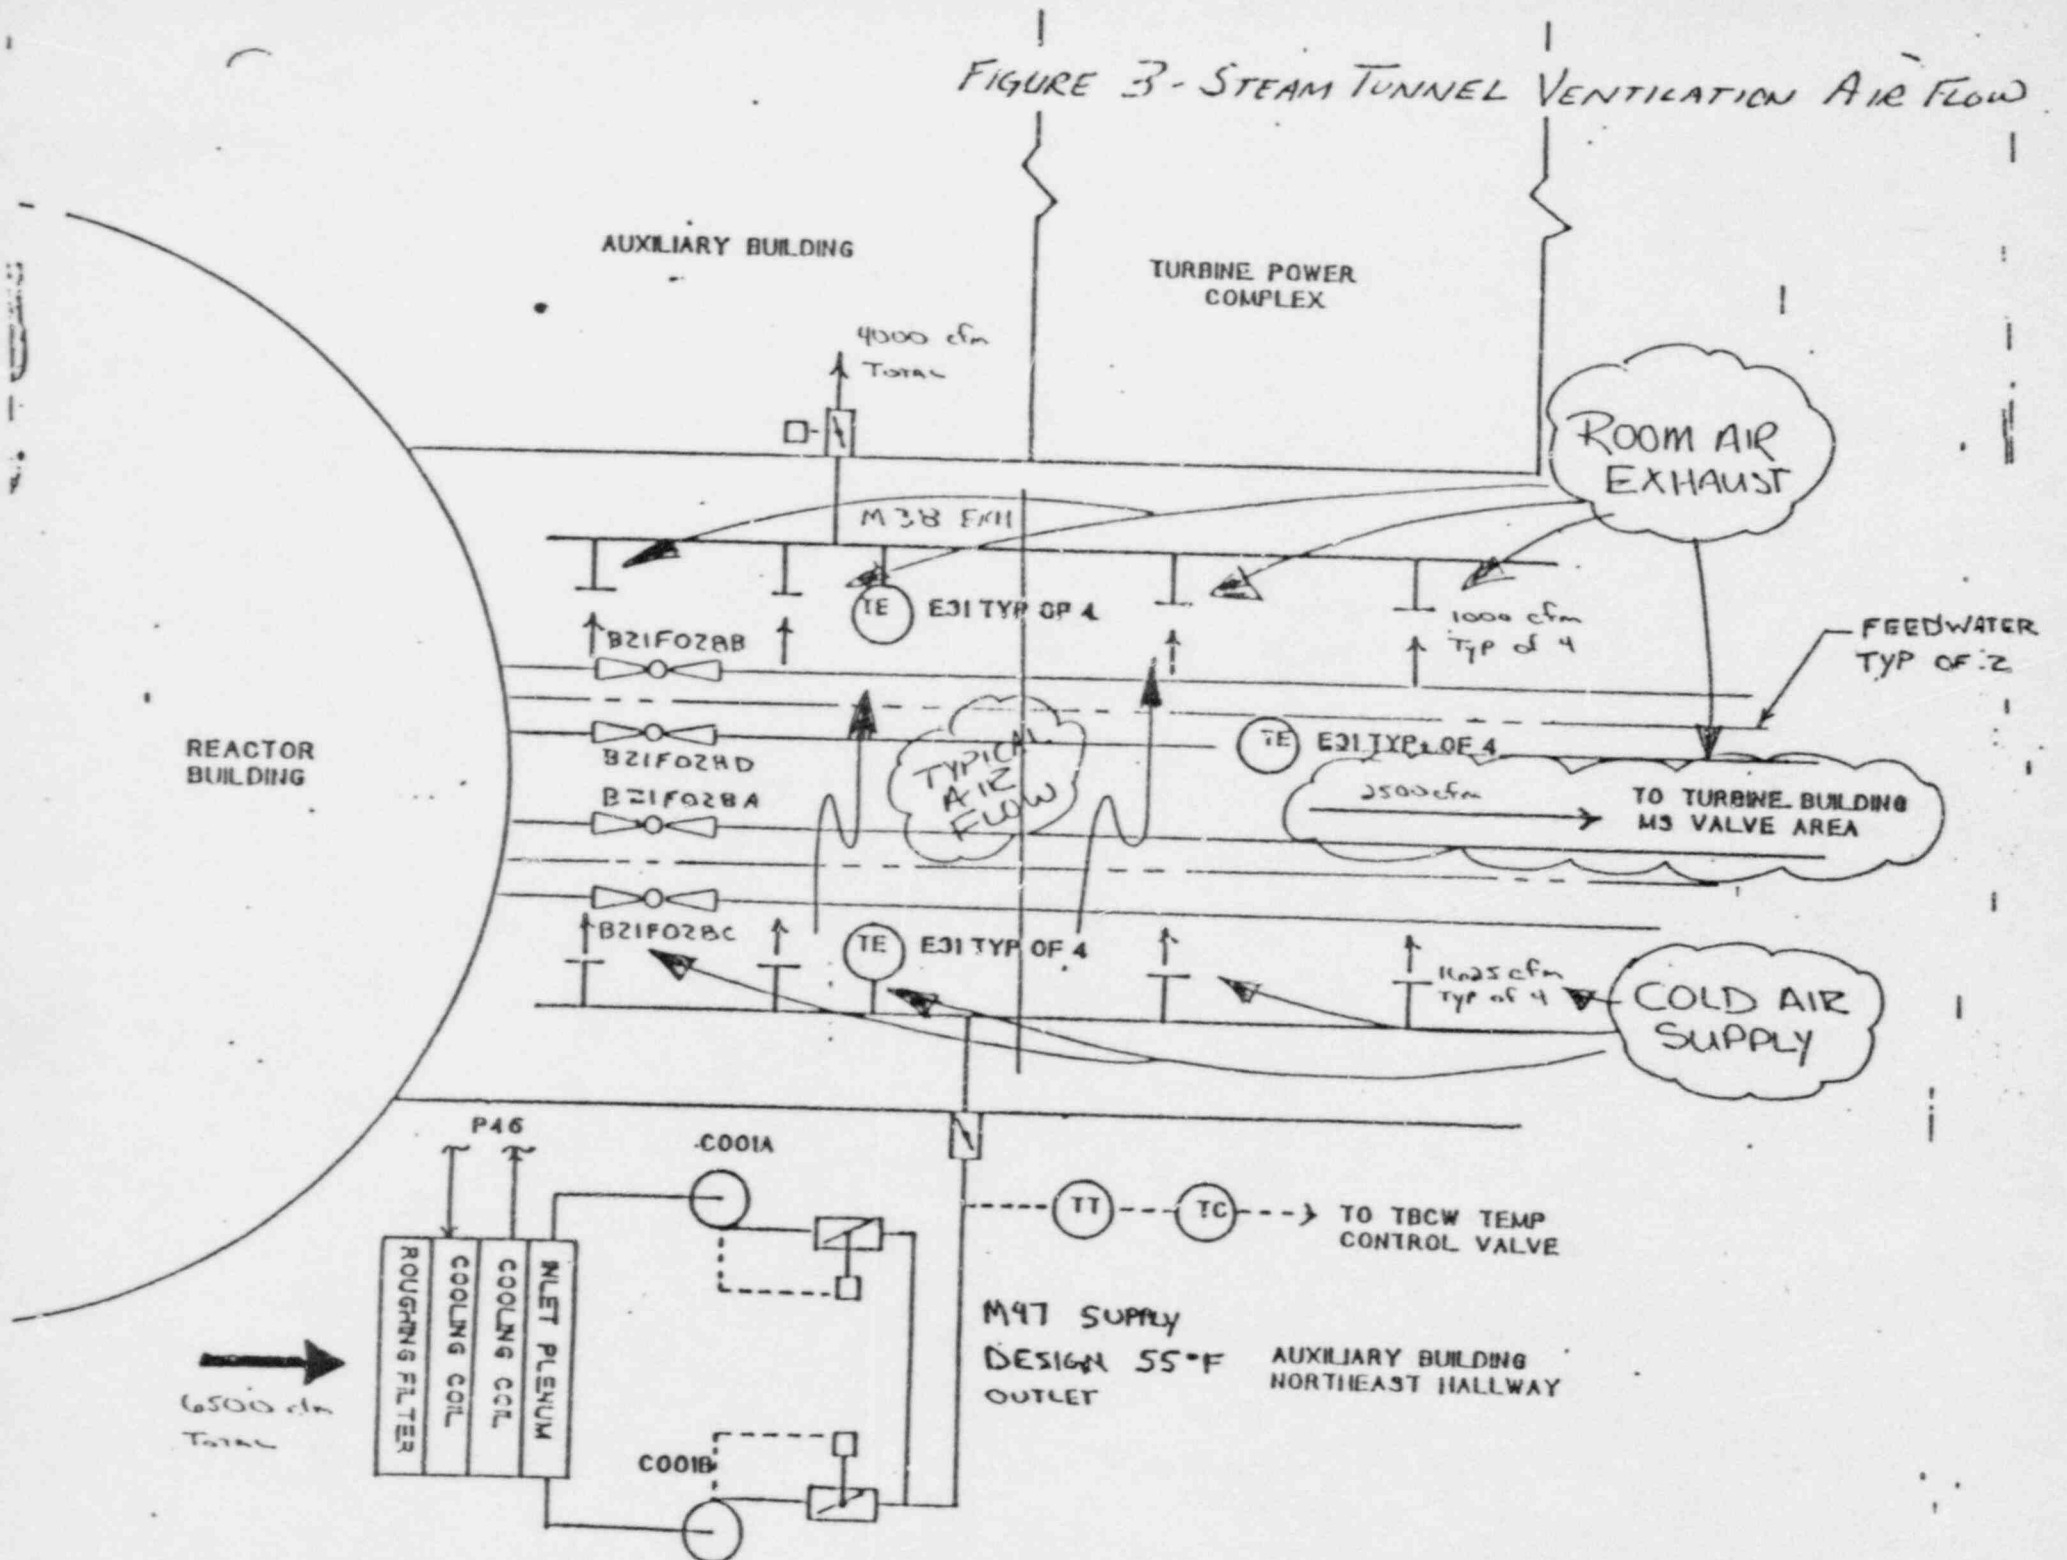 FIGURE 3 - STEAM TUNNEL VENTILATION AIR FLOW
AUXILIARY BUILDING
TURBINE POWER
COMPLEX
4000 cfm
TOTAL
ROOM AIR
EXHAUST
M38 EXH
TE
E31 TYP OF 4
1000 cfm
Typ of 4
B21F028B
FEEDWATER
TYP OF 2
REACTOR
BUILDING
B21F028D
TYPICAL
AIR
FLOW
TE
E31 TYP. OF 4
B21F028A
2500 cfm
TO TURBINE BUILDING
MS VALVE AREA
B21F028C
TE
E31 TYP OF 4
1625 cfm
Typ of 4
COLD AIR
SUPPLY
P46
C001A
TT
TC
TO TBCW TEMP
CONTROL VALVE
ROUGHING FILTER
COOLING COIL
COOLING COIL
INLET PLENUM
6500 cfm
TOTAL
M47 SUPPLY
DESIGN 55°F
OUTLET
AUXILIARY BUILDING
NORTHEAST HALLWAY
C001B